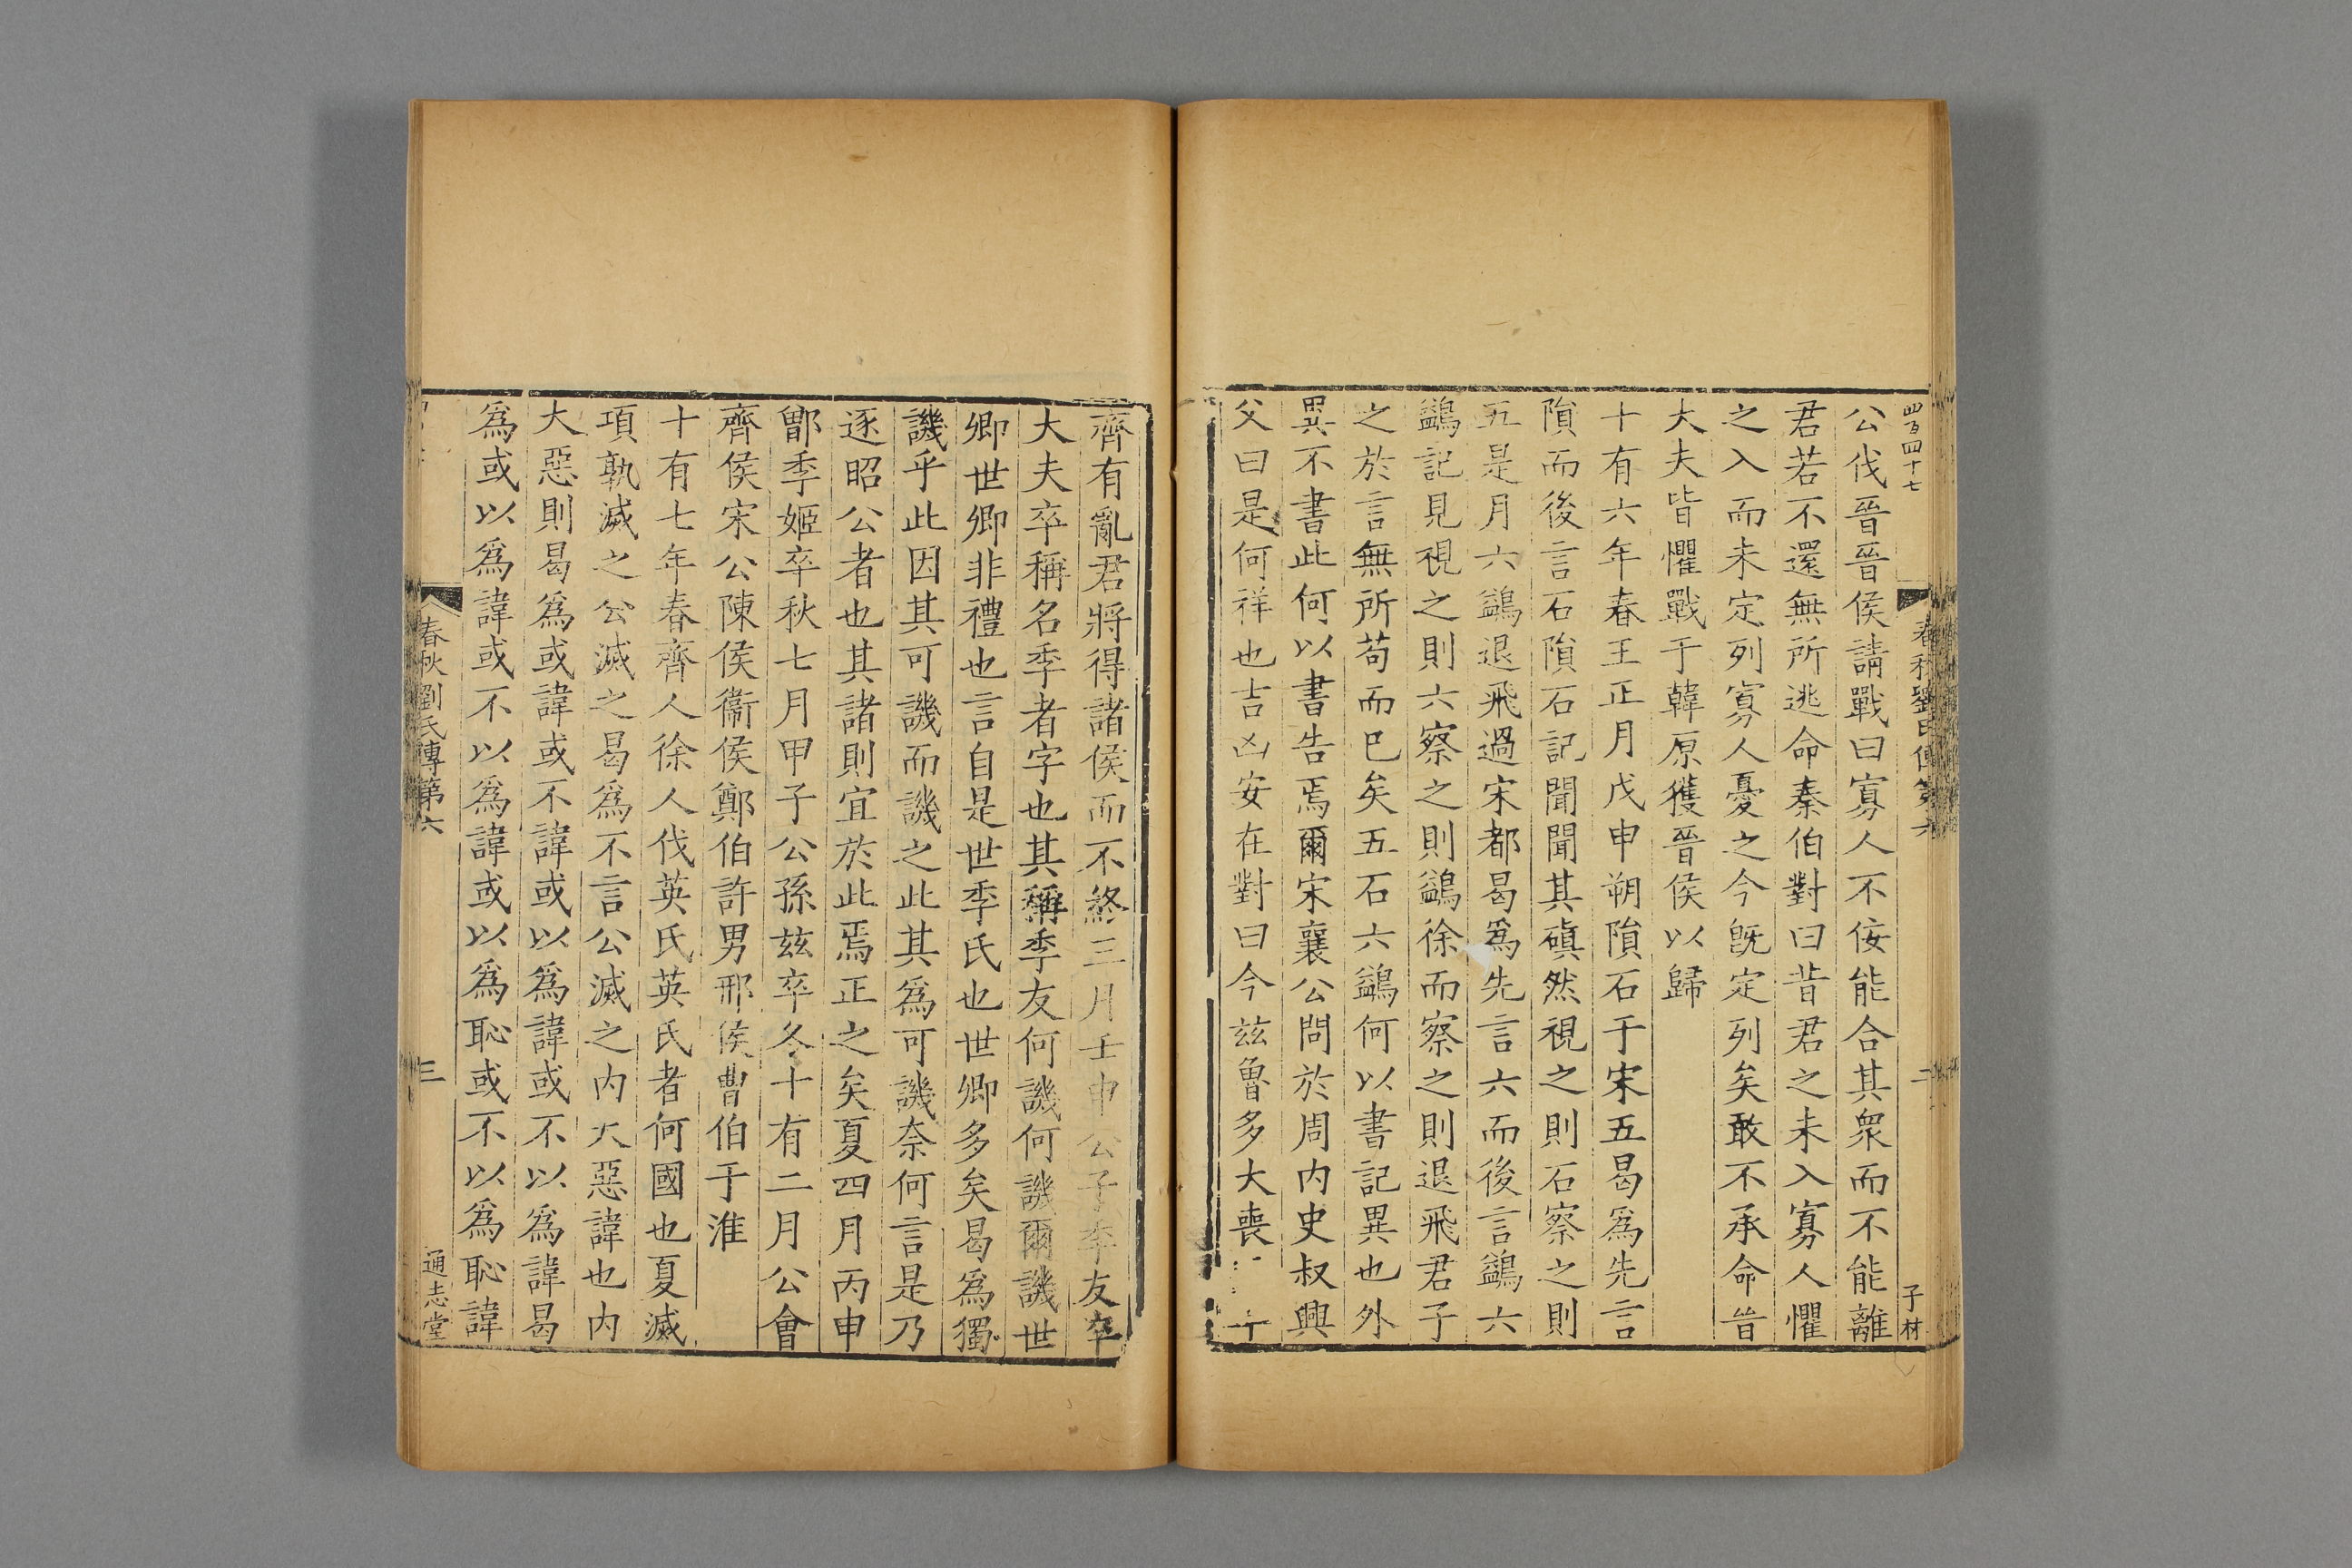 四百四十七
春秋劉氏傳第六
二
子材
公伐晉晉侯請戰曰寡人不佞能合其衆而不能離
君若不還無所逃命秦伯對曰昔君之未入寡人懼
之入而未定列寡人憂之今旣定列矣敢不承命昔
大夫皆懼戰于韓原獲晉侯以歸
十有六年春王正月戊申朔隕石于宋五曷爲先言
隕而後言石隕石記聞聞其磌然視之則石察之則
五是月六鷁退飛過宋都曷爲先言六而後言鷁六
鷁記見視之則六察之則鷁徐而察之則退飛君子
之於言無所苟而巳矣五石六鷁何以書記異也外
異不書此何以書告焉爾宋襄公問於周内史叔興
父曰是何祥也吉凶安在對曰今兹魯多大喪
齊有亂君將得諸侯而不終三月壬申公子季友卒
大夫卒稱名季者字也其稱季友何譏何譏爾譏世
卿世卿非禮也言自是世季氏也世卿多矣曷爲獨
譏乎此因其可譏而譏之此其爲可譏奈何言是乃
逐昭公者也其諸則宜於此焉正之矣夏四月丙申
鄫季姬卒秋七月甲子公孫兹卒冬十有二月公會
齊侯宋公陳侯衞侯鄭伯許男邢侯曹伯于淮
十有七年春齊人徐人伐英氏英氏者何國也夏滅
項孰滅之公滅之曷爲不言公滅之内大惡諱也内
大惡則曷爲或諱或不諱或以爲諱或不以爲諱曷
爲或以爲諱或不以爲諱或以爲恥或不以爲恥諱
春秋劉氏傳第六
三
通志堂